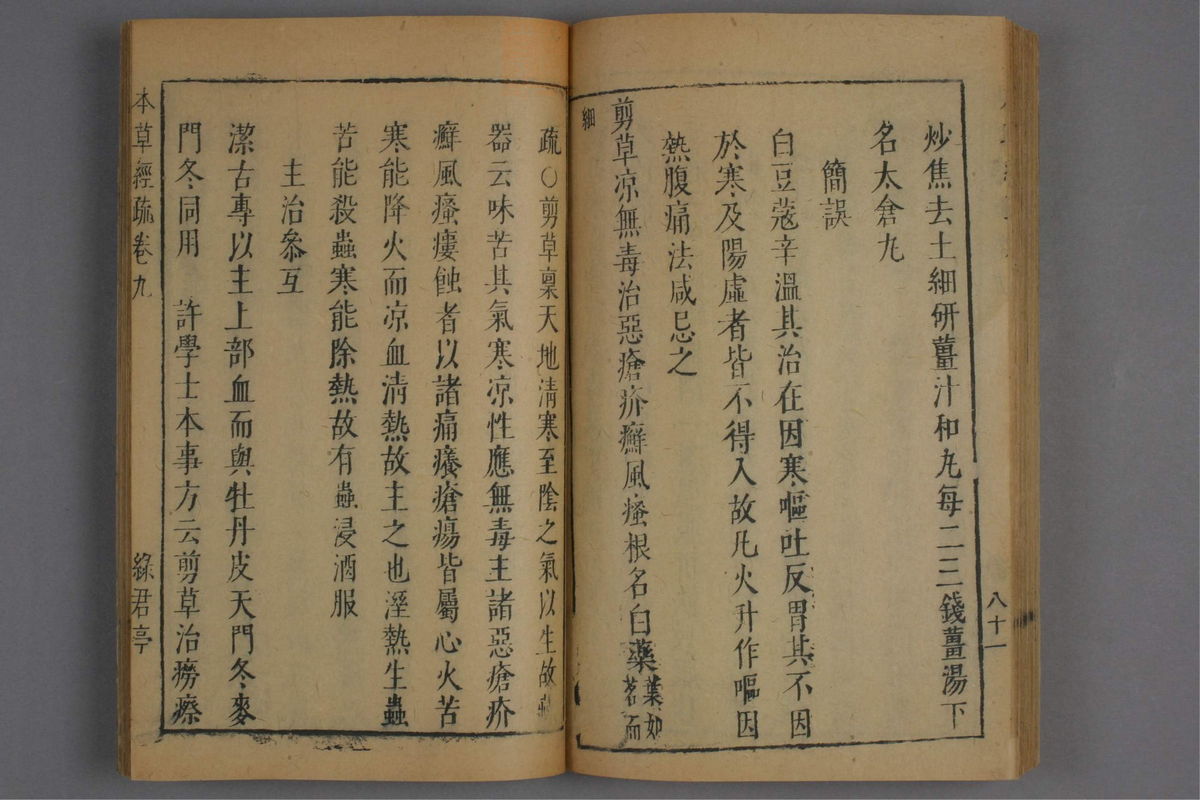 炒焦去土細研薑汁和丸每二三錢薑湯下
名太倉丸
簡誤
白豆蔻辛溫其治在因寒嘔吐反胃其不因
於寒及陽虛者皆不得入故凡火升作嘔因
熱腹痛法咸忌之
剪草凉無毒治惡瘡疥癬風瘙根名白藥葉如茗而
細
八十一
疏○剪草稟天地清寒至陰之氣以生故藏
器云味苦其氣寒凉性應無毒主諸惡瘡疥
癬風瘙瘻蝕者以諸痛癢瘡瘍皆屬心火苦
寒能降火而凉血清熱故主之也溼熱生蟲
苦能殺蟲寒能除熱故有蟲浸酒服
主治叅互
潔古專以主上部血而與牡丹皮天門冬麥
門冬同用 許學士本事方云剪草治癆瘵
本草經疏卷九 綠君亭